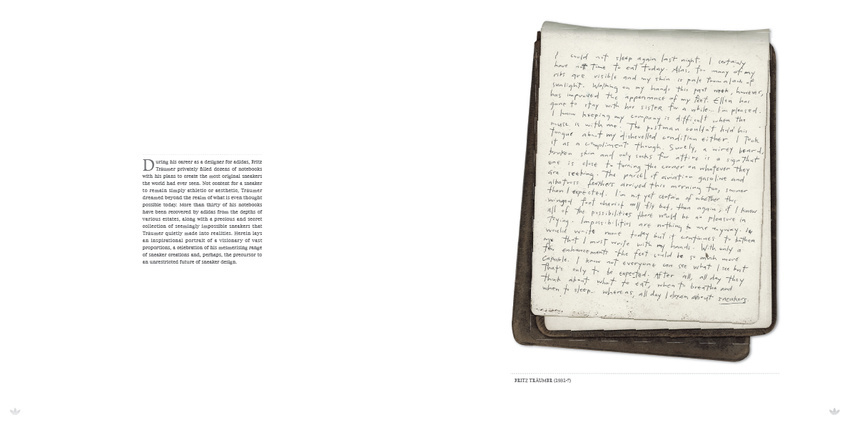 During his career as a designer for adidas, Fritz
Träumer privately filled dozens of notebooks
with his plans to create the most original sneakers
the world had ever seen. Not content for a sneaker
to remain simply athletic or aesthetic, Träumer
dreamed beyond the realm of what is even thought
possible today. More than thirty of his notebooks
have been recovered by adidas from the depths of
various estates, along with a precious and secret
collection of seemingly impossible sneakers that
Träumer quietly made into realities. Herein lays
an inspirational portrait of a visionary of vast
proportions, a celebration of his mesmerizing range
of sneaker creations and, perhaps, the precursor to
an unrestricted future of sneaker design.
I could not sleep again last night. I certainly
have not time to eat today. Also, too many of my
ribs are visible and my skin is pale from lack of
sunlight. Walking on my hands this past week, however,
has improved the appearance of my feet. Ellen has
gone to stay with her sister for a while. I'm pleased.
I know keeping my company is difficult when the
muse is with me. The postman couldn't hold his
tongue about my dishevelled condition either. I took
it as a compliment though. Surely, a wirey beard,
broken skin and only socks for attire is a sign that
one is close to turning the corner on whatever they
are seeking. The parcel of aviation gasoline and
albatross feathers arrived this morning too, sooner
than I expected. I'm not yet certain of whether this
winged foot will fly but, then again, if I knew
all of the possibilities there would be no pleasure in
trying. Impossibilities are nothing to me anyway. I
would write more today but it continues to bother
me that I must write with my hands. With only a
few enhancements the feet could be so much more
capable. I know not everyone can see what I see but
that's only to be expected. After all, all day they
think about what to eat, when to breathe and
when to sleep. Whereas, all day I dream about sneakers
FRITZ TRÄUMER (1932-?)